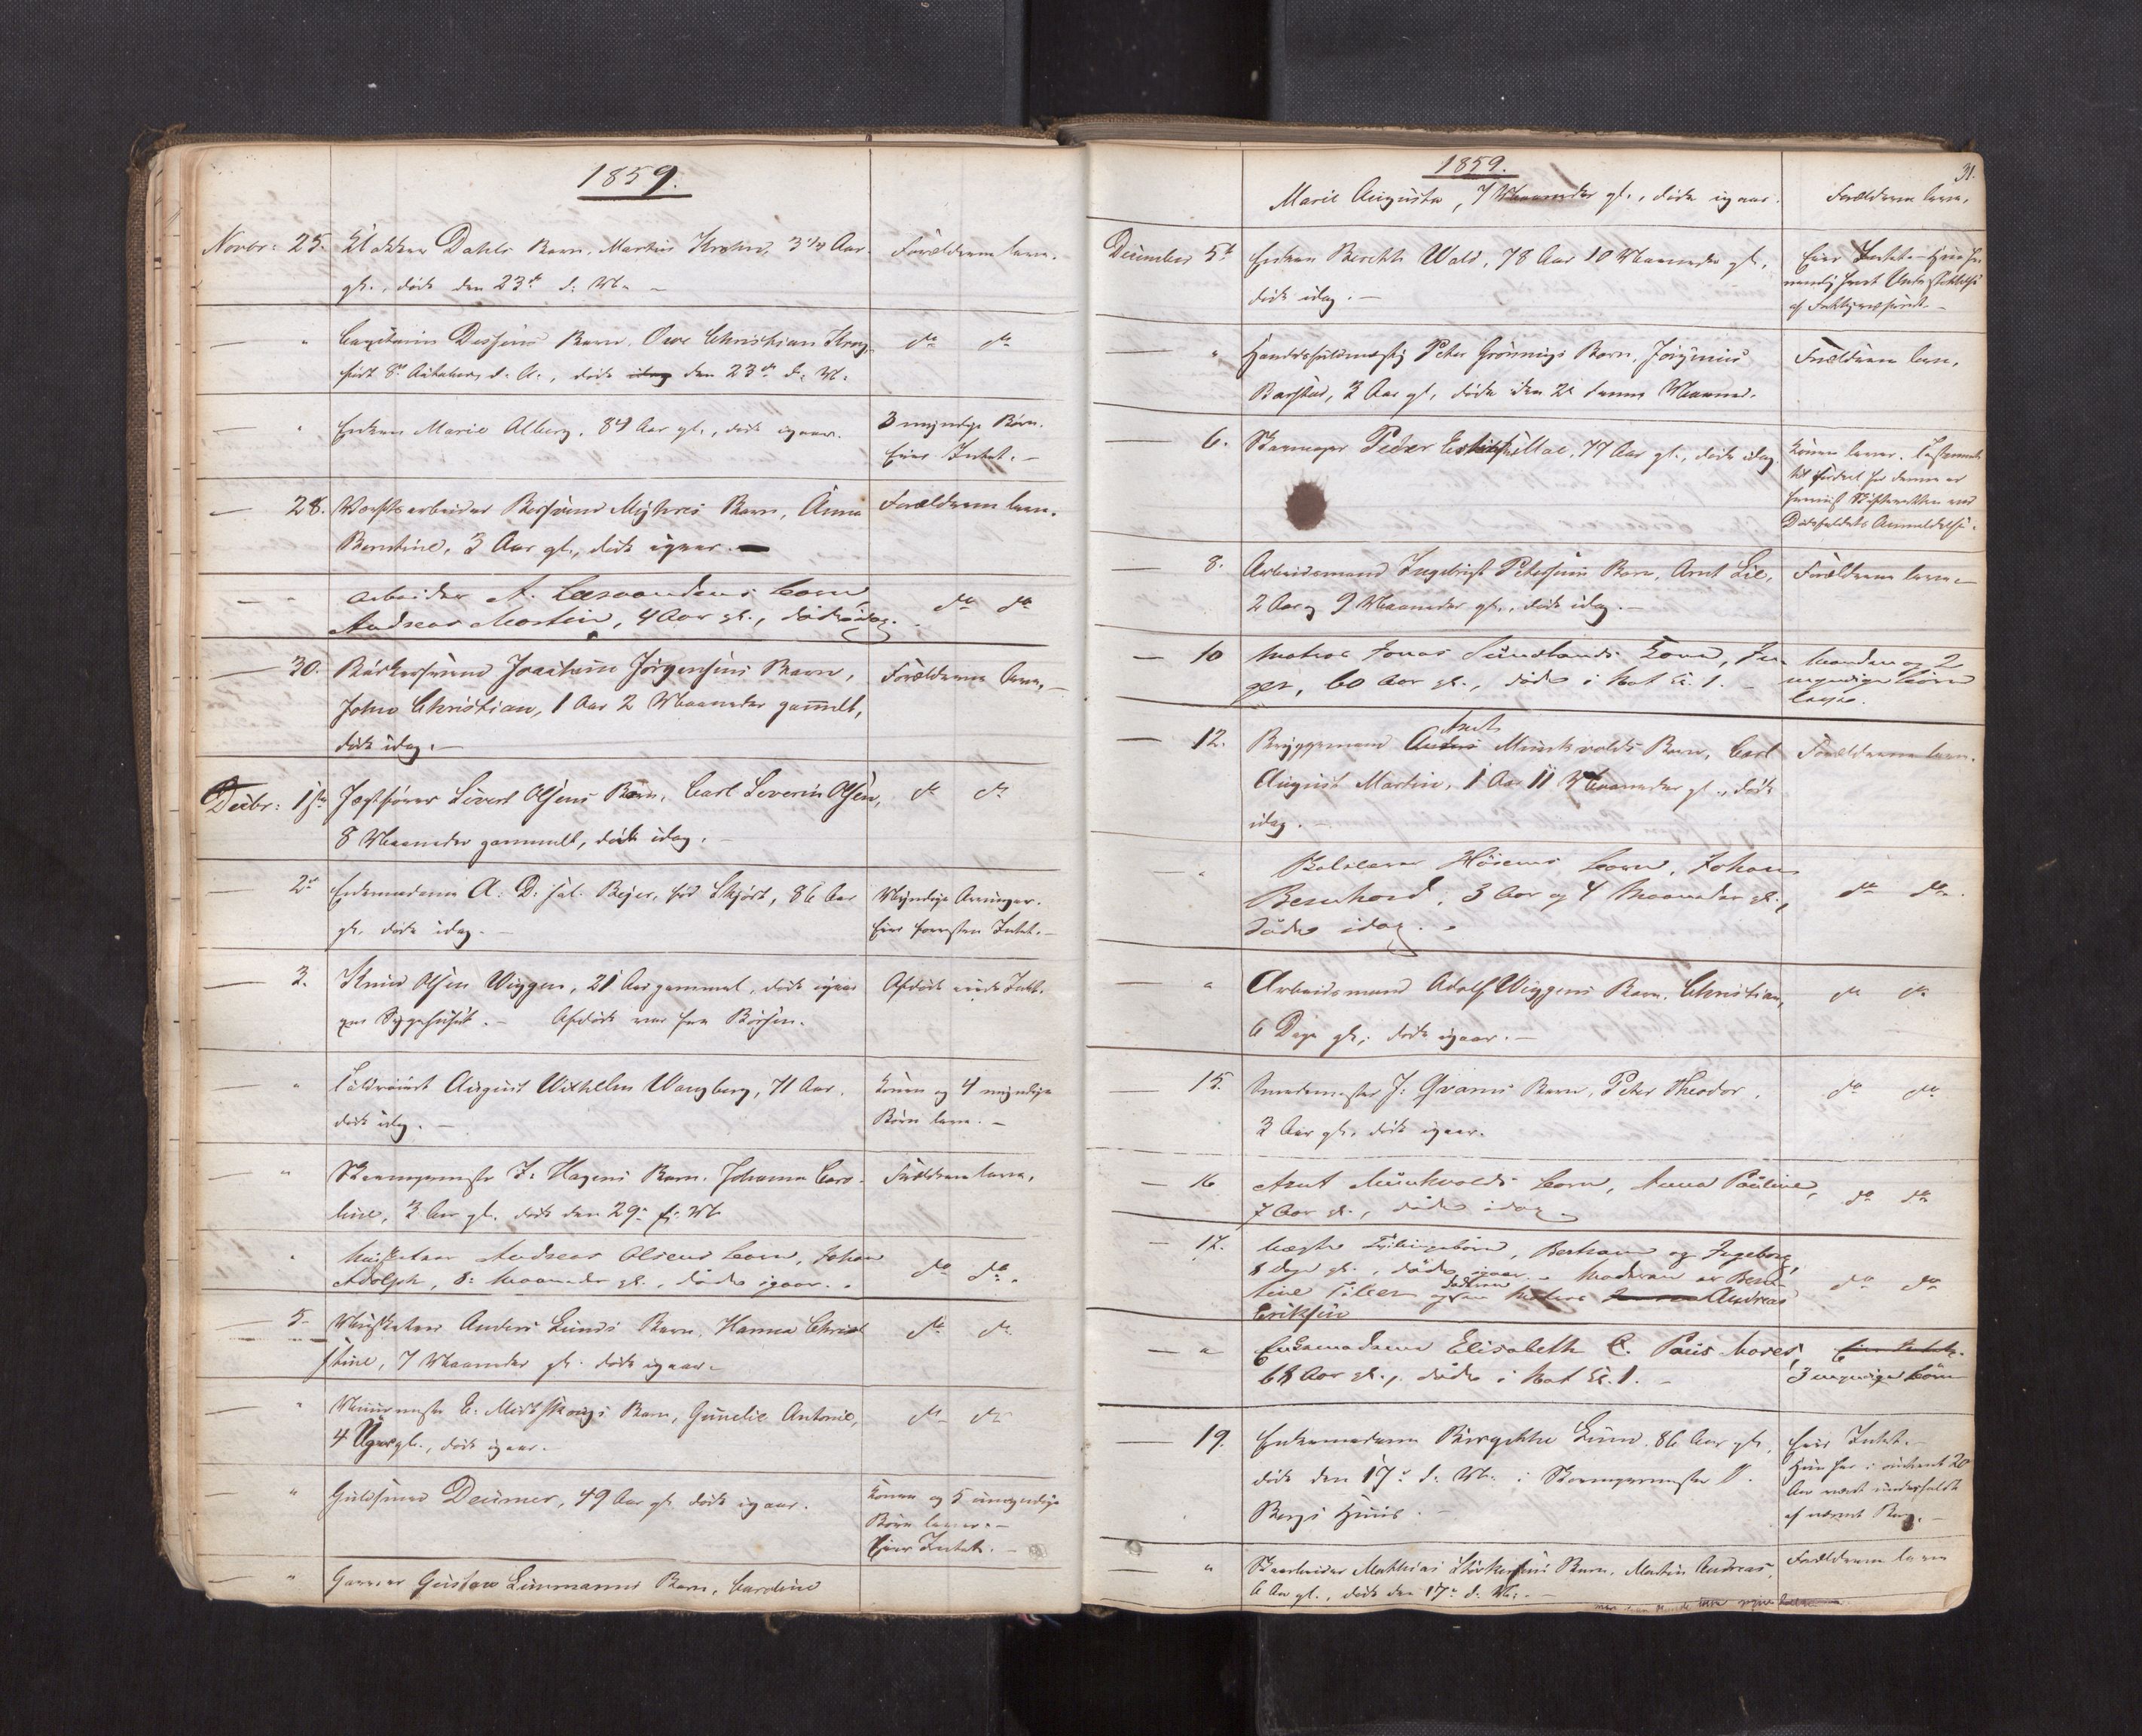 1859.
Novbr: 25. Klokker Dahls Barn, Martin Krohn, 3 1/4 Aar
gl., døde den 23de d: M.
— " Capitain Barn, Christian Krog,
født 8de d. A., døde idag den 23de d. M.
— " Enken Marie Alberg, 84 Aar gl., døde igaar.
3 myndige Børn.
Eier Intet. -
— 28. Værftsarbeider Myhres Barn, Anna
Forældrene leve.
Berntine, 3 Aar gl., døde igaar. —
— " Arbeider A. Barn
Andreas Martin, 4 Aar gl., døde idag.
do do
— 30. Bødkersvend Joachim Jørgensens Barn,
Forældrene leve. -
Johan Christian, 1 Aar 2 Maaneder gammelt,
døde idag. -
Decbr: 1ste Jægtfører Sivert Olsens Barn, Carl Severin Olsen,
do do
8 Maaneder gammelt, døde idag. -
— 2den Enkemadame A. D. sal. Beyer, fød Skjørt, 86 Aar
Myndige Arvinger.
gl. døde idag. -
Eier forresten Intet. -
— 3. Knud Olsen Wiggen, 21 Aar gammel, døde igaar
Afdøde eiede Intet.
paa Sygehuset. - Afdøde var fra Børsen.
— " August Wilhelm Wangberg, 71 Aar,
Konen og 4 myndige
døde idag. -
Børn leve. -
" Skomagermester I. Hagens Barn, Johanna Caro-
Forældrene leve.
line, 3 Aar gl. døde den 29de f. M.
" Musketeer Andreas Olsens Barn, Johan
Adolph, 8 Maaneder gl., døde igaar.
do do.
5. Musketeer Anders Lunds Barn, Hanna Chris-
do do.
stine, 7 Maaneder gl. døde igaar.
— " Muurmester E. Midtskougs Barn, Gunelie Antonie,
do do
4 Uger gl., døde igaar.
— " Guldsmed Deumer, 49 Aar gl. døde igaar.
Konen og 5 umyndige
Børn lever. -
Eier Intet. -
— " Garver Gustav Linmanns Barn, Caroline
1859.
31.
Marie Augusta, 7 Maaneder gl., døde igaar.
Forældrene leve.
December 5te Enken Berethe Wald, 78 Aar 10 Maaneder gl.,
døde idag. -
Eier Intet. - Hun har
nemlig havt Understøttelse
af Fattigvæsenet. -
— " Handelsfuldmægtig Peter Grønnings Barn, Jørginus
Forældrene leve.
Barstad, 3 Aar gl., døde den 2den denne Maaned.
— 6. Skomager Peder 77 Aar gl., døde idag.
Konen lever. Testament
— 8. Arbeidsmand Ingebrigt Petersens Barn, Arnt Lie,
Forældrene leve. -
2 Aar og 9 Maaneder gl., døde idag. -
— 10 Matros Jonas Sundlands Kone, In-
Manden og 2
ger, 60 Aar gl., døde i Nat Kl. 1. -
myndige Børn
leve.
— 12. Bryggemand Anders Arnt Munkvolds Barn, Carl
Forældrene leve.
August Martin, 1 Aar 11 Maaneder gl., døde
idag. -
— " Høiems Barn, Johan
Bernhard, 3 Aar og 4 Maaneder gl.,
do do.
døde idag.
— " Arbeidsmand Adolf Wiggens Barn, Christian,
do do
6 Dage gl., døde igaar. -
— 15. Snedkermester J. Qvams Barn, Peter Theodor,
do do
3 Aar gl., døde igaar.
— 16 Arnt Munkvolds Barn, Anna Pauline,
do do
7 Aar gl., døde idag.
— 17. Uægte Tvillingebørn, Bertram og Ingeborg,
8 Dage gl., døde igaar. Moderen er Bern-
do do
tine Tiller og Faderen Matros Andreas
Eriksen
— " Enkemadame Elisabeth C. Pauis Moses,
Eier Intet.
68 Aar gl., døde i Nat Kl. 1. -
3 myndige Børn
— 19. Enkemadame Birgitte Lund, 86 Aar gl.,
Eier Intet. -
døde den 17de d. M. i Skomagermester
Hun har i omtrent 20
Aar været underholdt
Bergs Huus. -
af nævnte Berg. -
— " Mathias Barn, Martin Andreas,
Forældrene leve
6 Aar gl., døde den 17de d. M. -